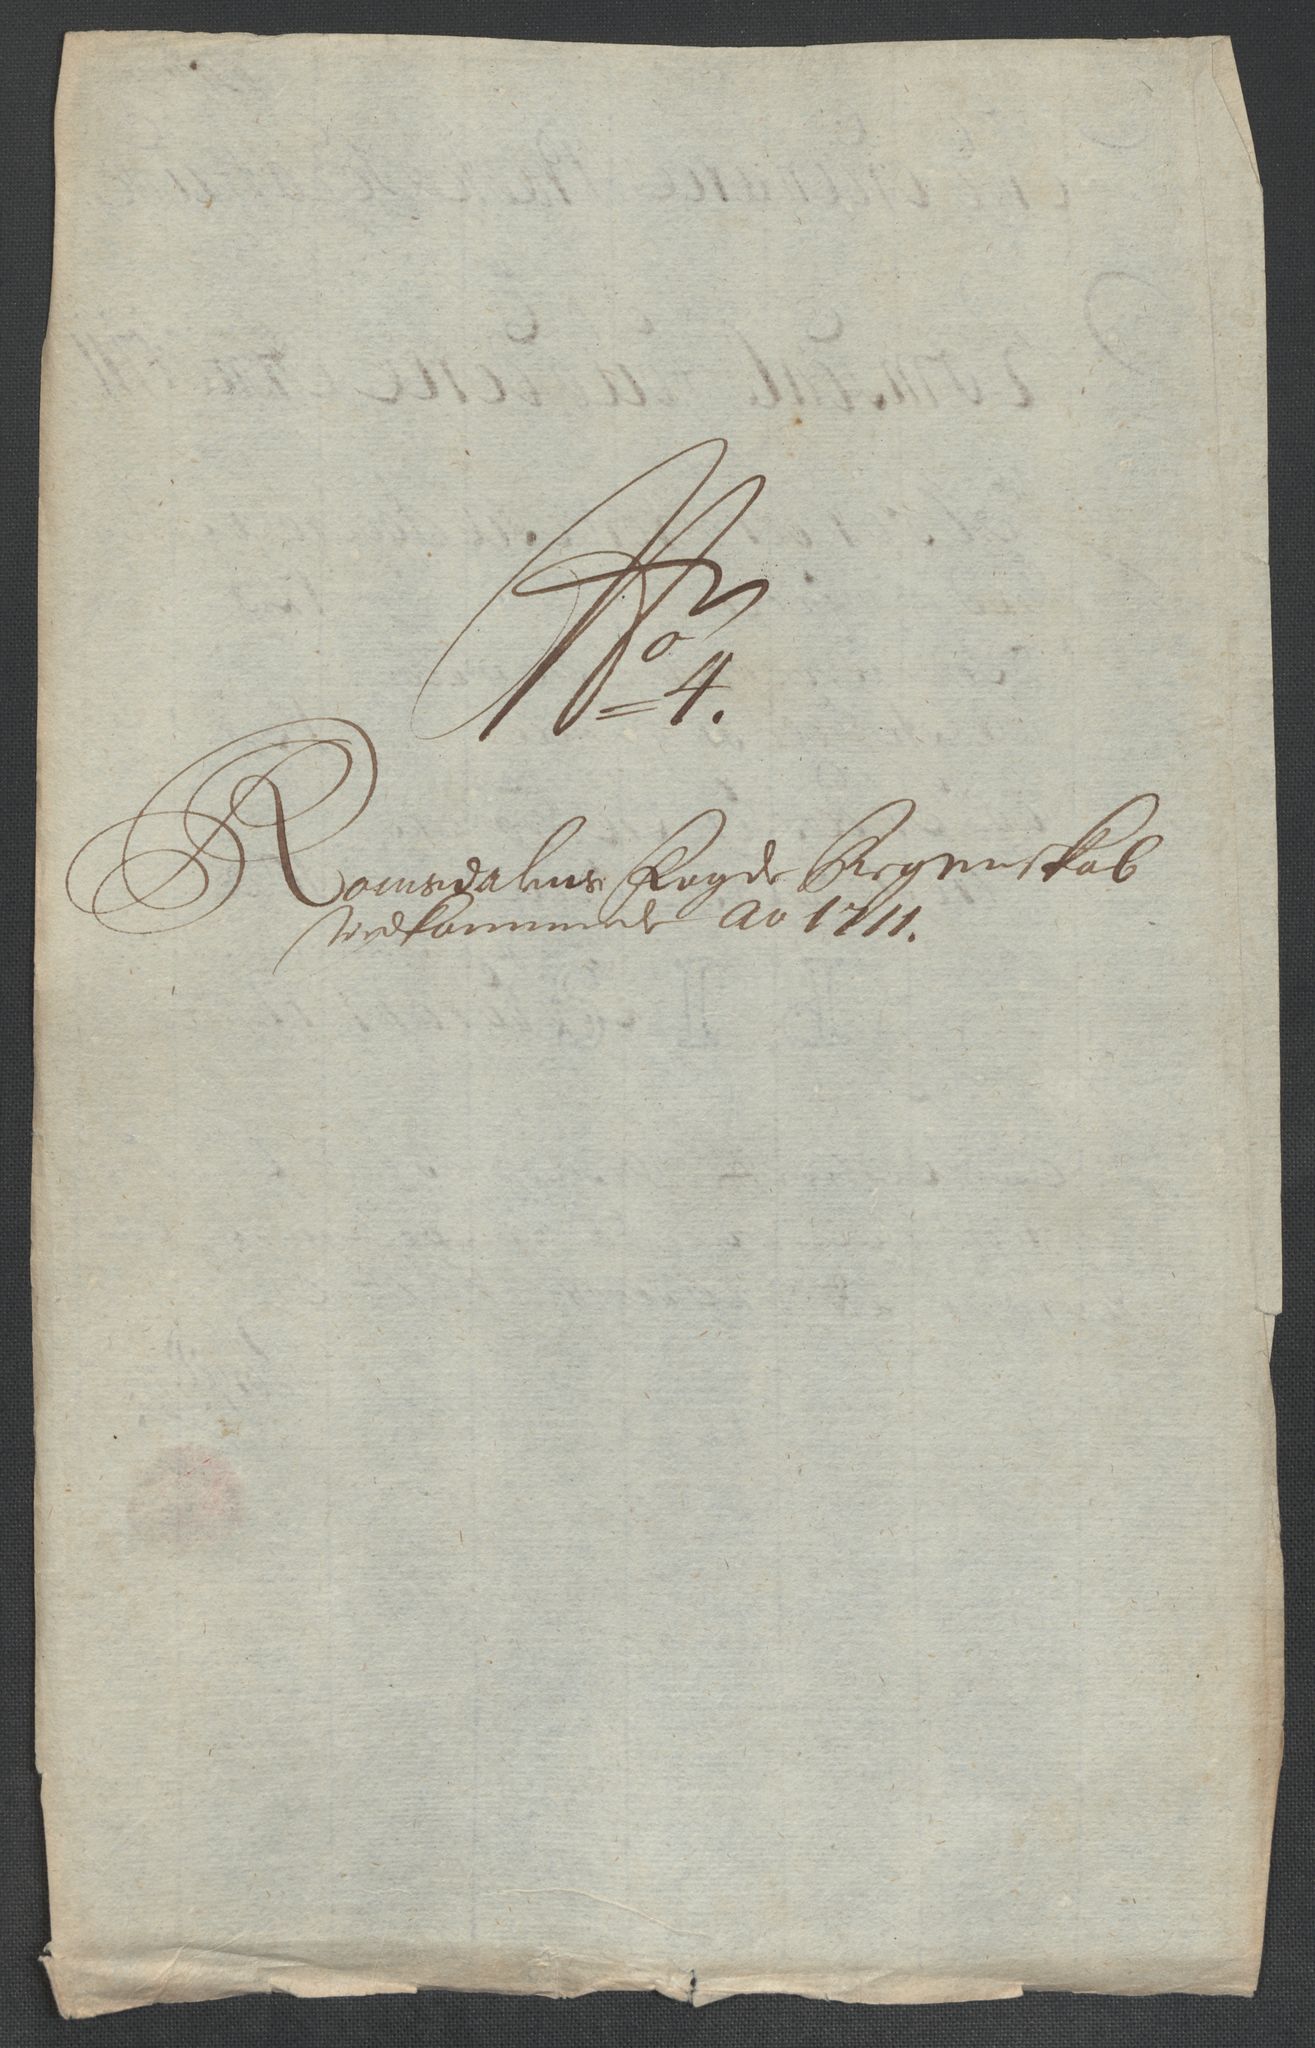 No 4.
Romsdalens Fogde Regenskab
vedkommende Ao 1711.